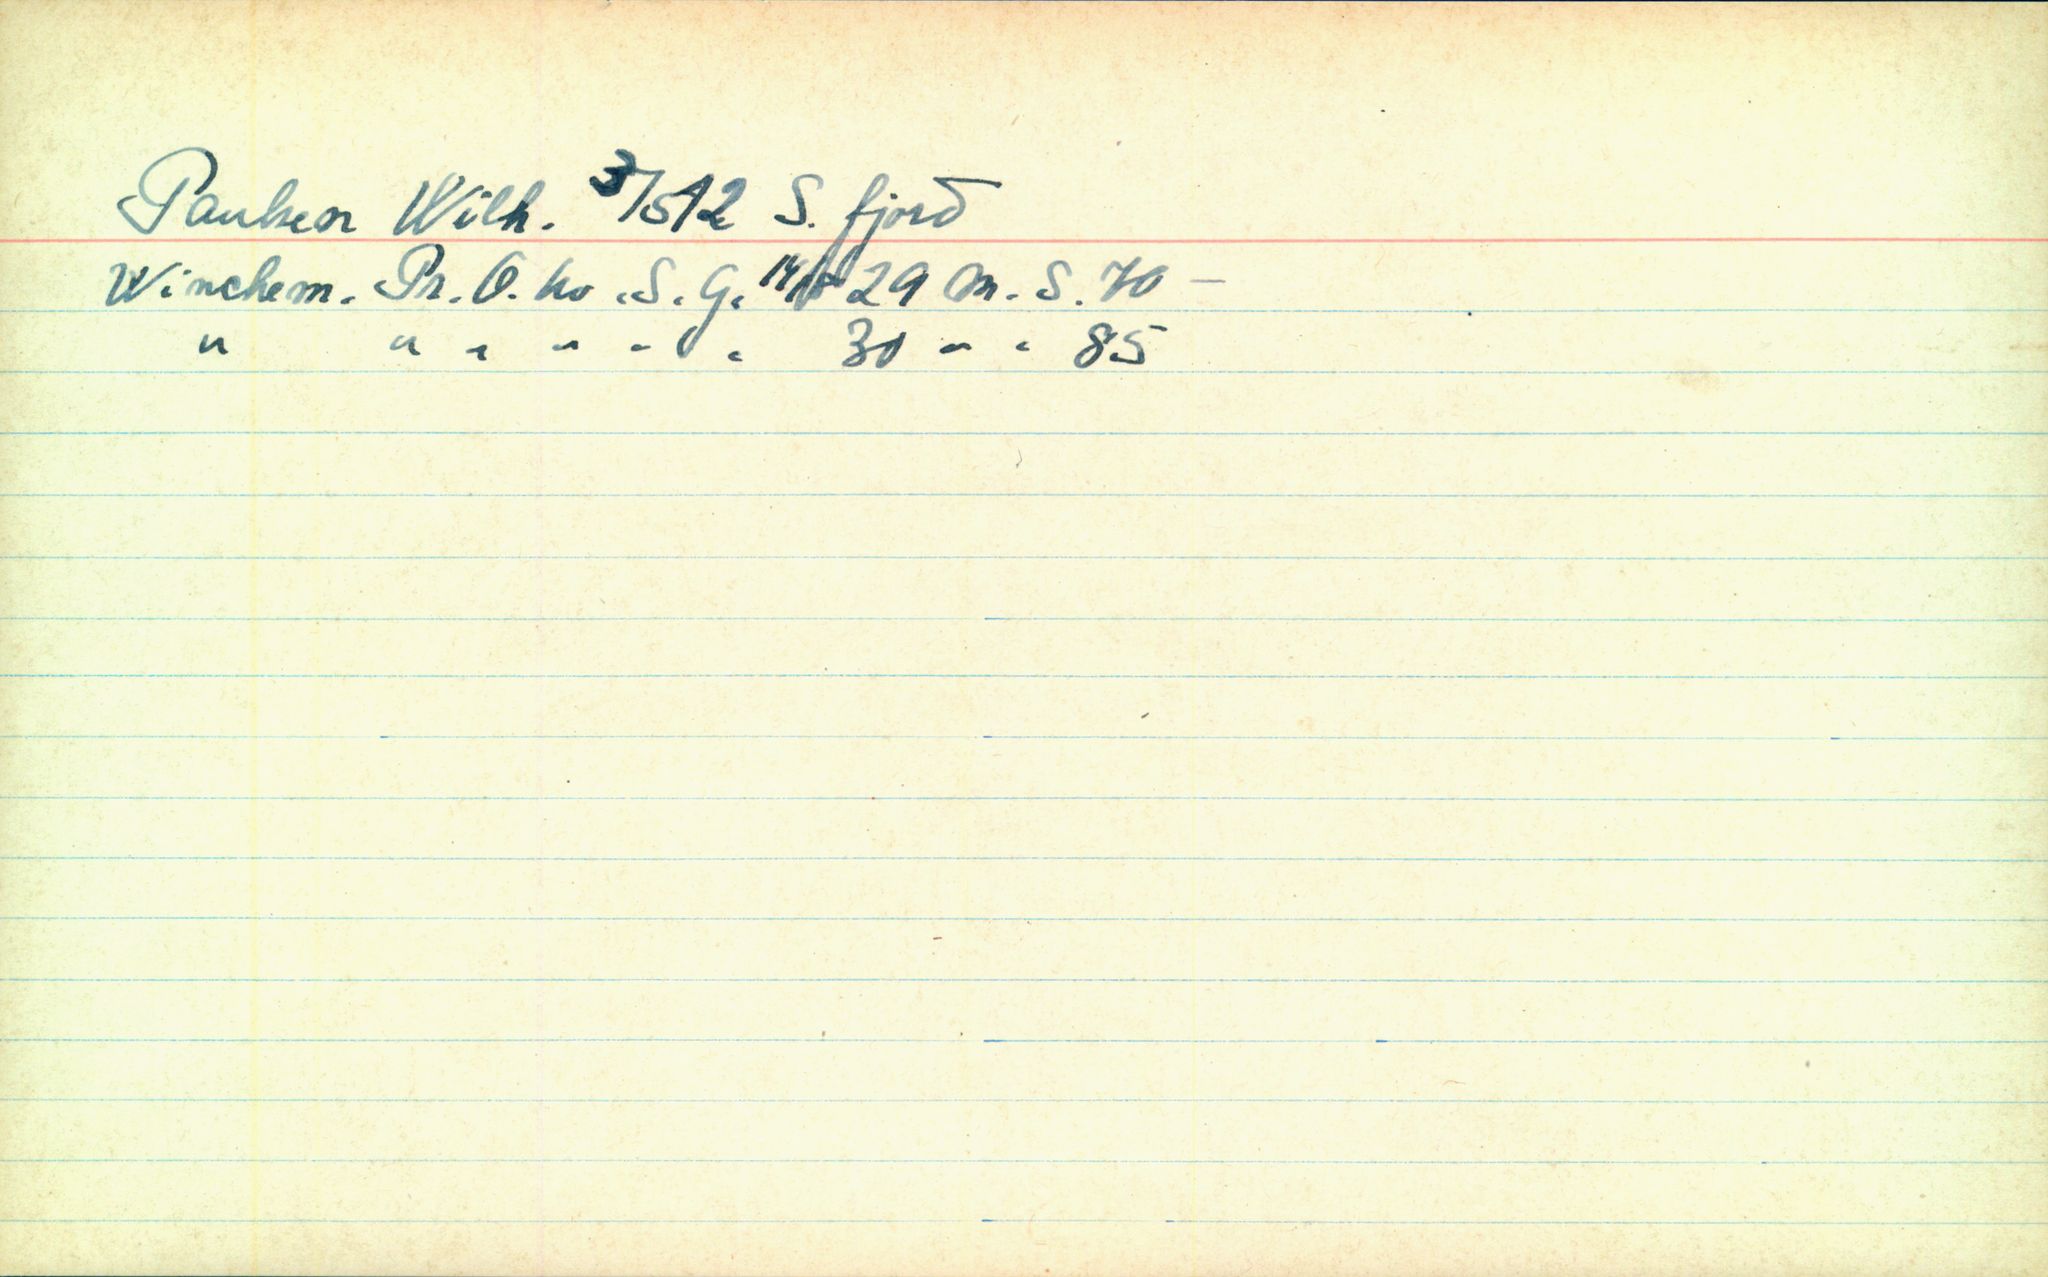 Paulsen Wilh. 3/5 12 S. fjord
Winchem. Pr. O. Co. S. G. 14/ 29 M. S. 70 —
" " " " " " 30 " " 85